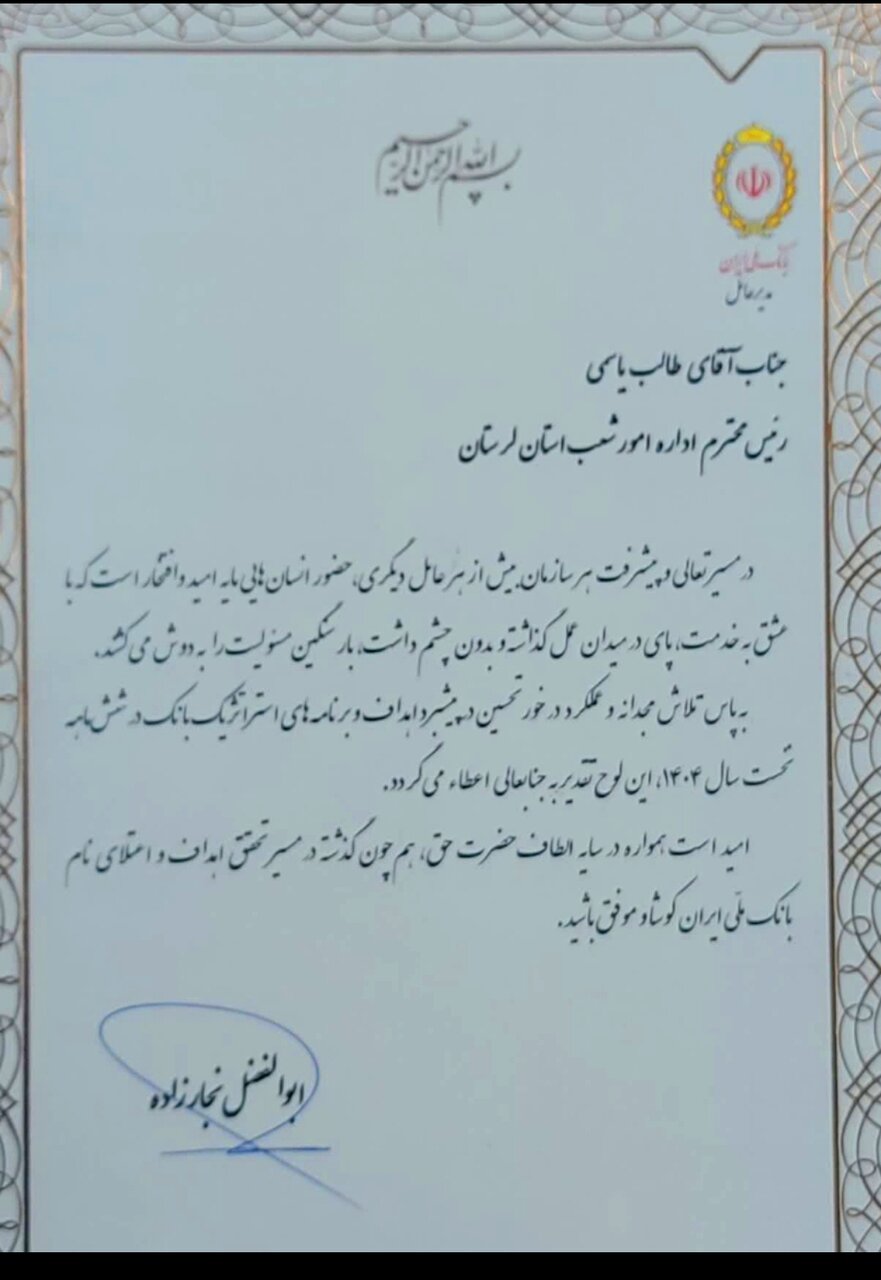 بسم الله الرحمن الرحیم
بانک ملی ایران
مدیرعامل
جناب آقای طالب یاسمی
رئیس محترم اداره امور شعب استان لرستان
در مسیر تعالی و پیشرفت هر سازمان بیش از هر عامل دیگری، حضور انسان‌هایی مایه امید و افتخار است که با
عشق به خدمت، پای در میدان عمل گذاشته و بدون چشم داشت، بار سنگین مسئولیت را به دوش می‌کشند.
به پاس تلاش مجدانه و عملکرد در خور تحسین در پیشبرد اهداف و برنامه‌های استراتژیک بانک در شش ماهه
نخست سال ۱۴۰۴، این لوح تقدیر به جنابعالی اعطاء می‌گردد.
امید است همواره در سایه الطاف حضرت حق، هم چون گذشته در مسیر تحقق اهداف و اعتلای نام
بانک ملّی ایران کوشا و موفق باشید.
ابوالفضل نجارزاده